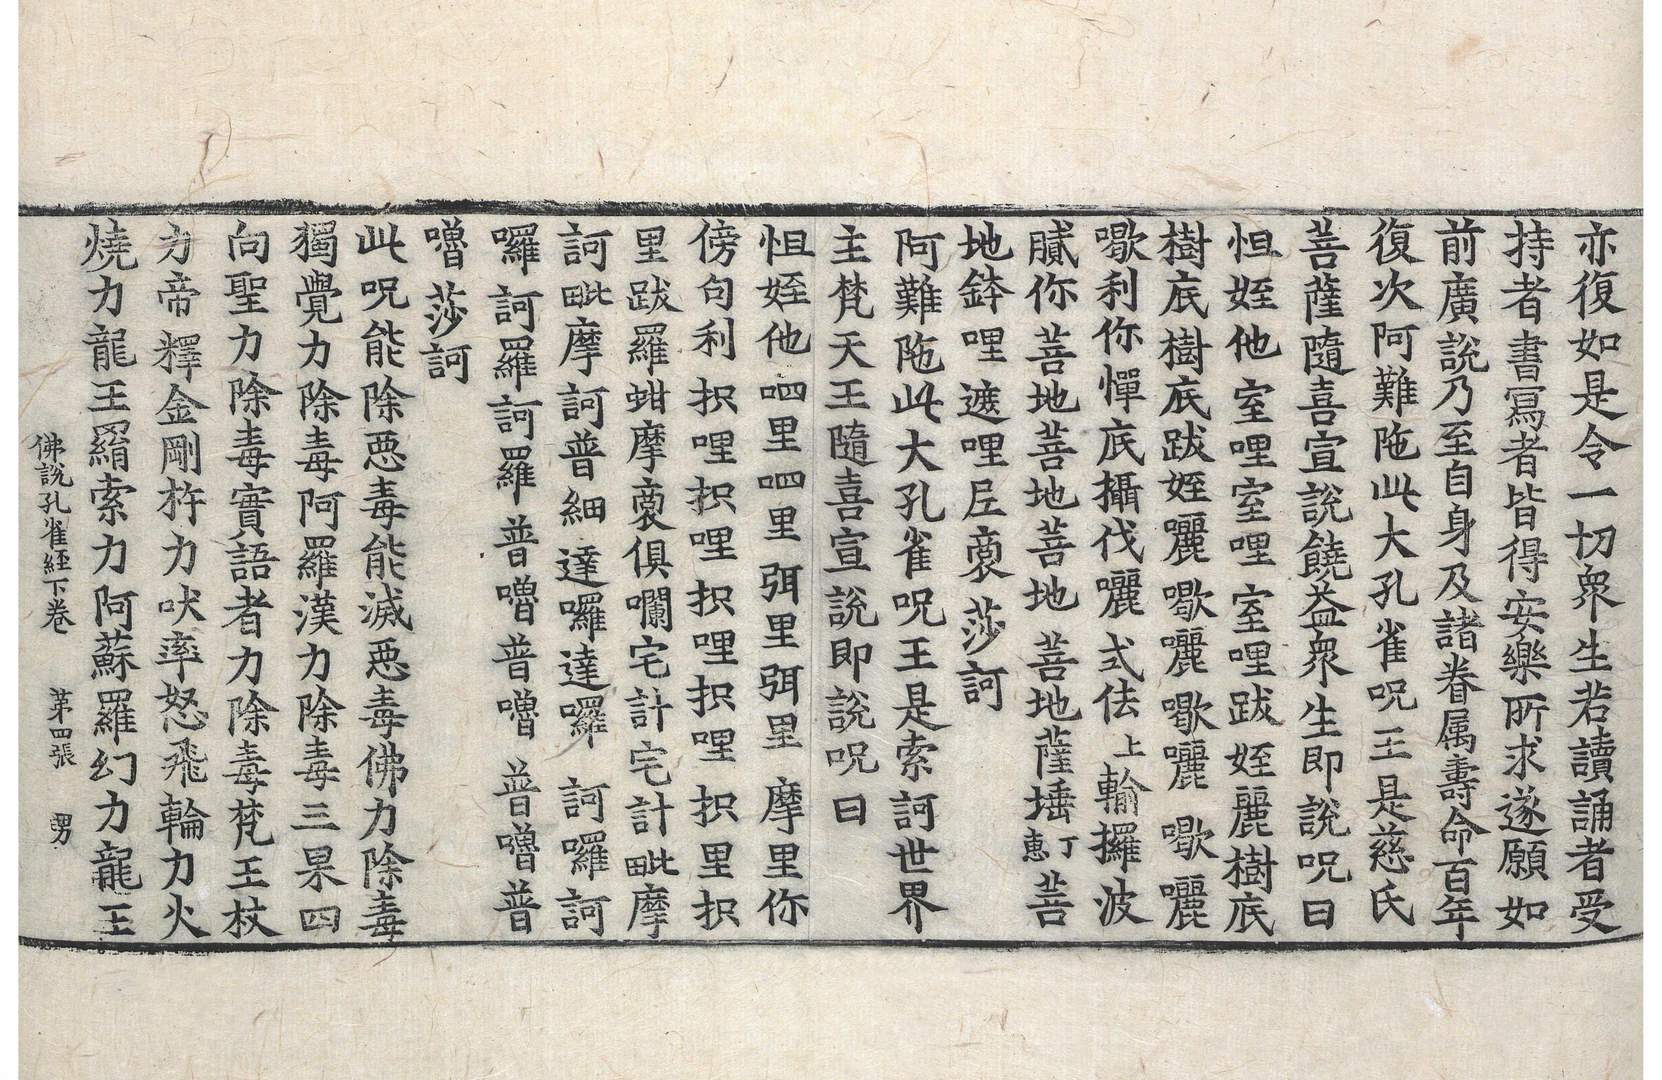 亦復如是令一切衆生若讀誦者受
持者書寫者皆得安樂所求遂願如
前廣說乃至自身及諸眷属壽命百年
復次阿難陁此大孔雀呪王是慈氏
菩薩隨喜宣說饒益衆生即說呪曰
怛姪他室哩室哩室哩跋姪麗樹底
樹底樹底跋姪囇㘑囇㘑囇㘑囇
㘑利你憚底攝伐囇式佉上輸攞波
膩你菩地菩地菩地菩地薩埵丁惠菩
地鉢哩遮哩𡰱裒莎訶
阿難陁此大孔雀呪王是索訶世界
主梵天王隨喜宣說即說呪曰
怛姪他呬里呬里弭里弭里摩里你
傍句利抧哩抧哩抧哩抧哩抧里抧
里跋羅蚶摩裒俱囒宅計宅計毗摩
訶毗摩訶普細達囉達囉訶囉訶
囉訶羅訶羅普嚕普嚕普嚕普
嚕莎訶
此呪能除惡毒能滅惡毒佛力除毒
獨覺力除毒阿羅漢力除毒三果四
向聖力除毒實語者力除毒梵王杖
力帝釋金剛杵力吠率怒飛輪力火
燒力龍王羂索力阿蘇羅幻力龍王
佛說孔雀経下卷 第四張 男